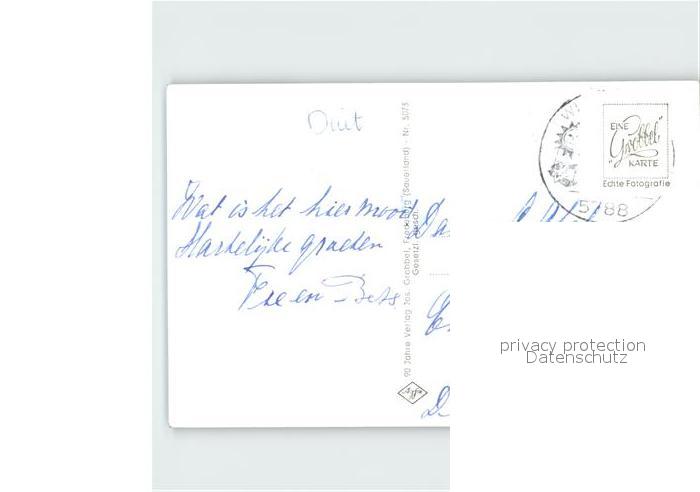 Duit
Wat is het hier mooi
Hartelijke groeten
en Bets
Da
D
90 Jahre Verlag Jos. Grobbel, Fredeburg (Sauerland) - Nr. 5075
Gesetzl. gesch.
Agfa
EINE
"Grobbel"
KARTE
Echte Fotografie
5788
privacy protection
Datenschutz